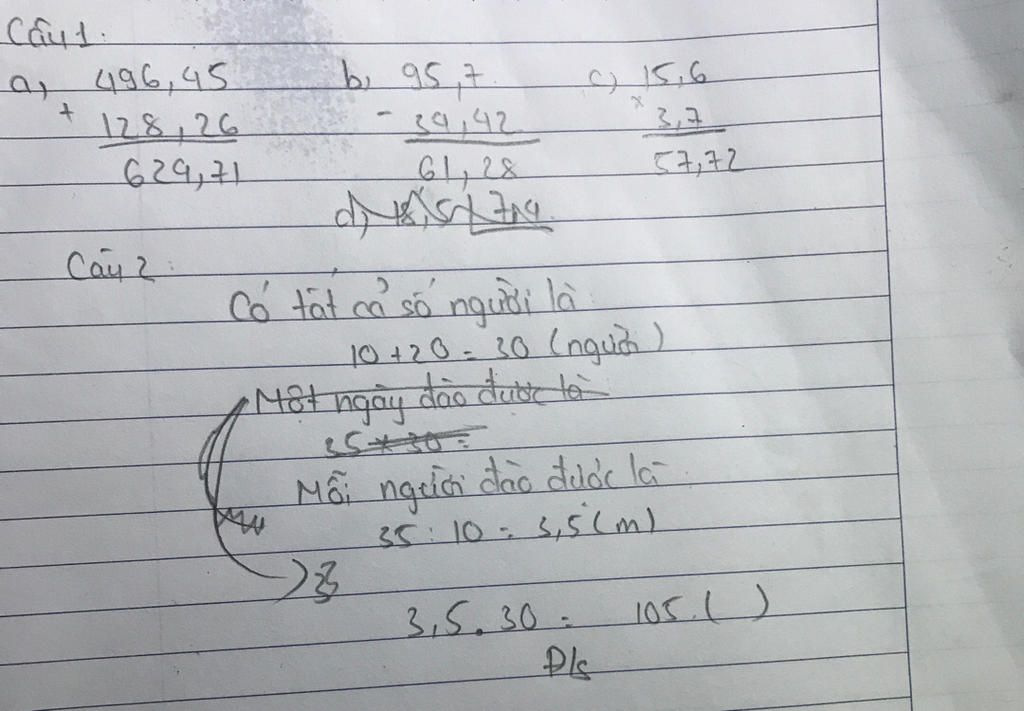 Câu 1:
a, 496,45 b, 95,7 c, 15,6
+ 128,26 - 34,42 x 3,7
624,71 61,28 57,72
d,
Câu 2:
Có tất cả số người là:
10 + 20 = 30 (người)
Một ngày đào được là
35 * 30 =
Mỗi người đào được là
35 : 10 = 3,5 (m)
3,5 . 30 = 105 ( )
Đ/s